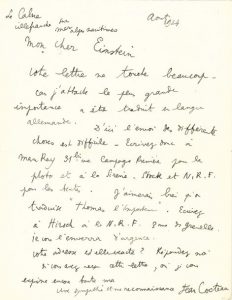 Le Calme
villefranche sur
mer alpes maritimes
Août
1924
Mon cher Einstein
votre lettre me touche beaucoup —
car j'attache la plus grande
importance à être traduit en langue
allemande.
D'ici l'envoi des différentes
choses est difficile — Écrivez donc à
Man Ray 31 bis rue Campagne Première pour la
photo et à la librairie Stock et N.R.F.
pour les textes.
J'aimerais bien qu'on
traduise "Thomas l'imposteur". Écrivez
à Hirsch à la N.R.F. 3 rue de Grenelle
votre adresse est-elle exacte? Répondez-moi
si vous avez reçu cette lettre, où je vous
exprime encore toute ma
sympathie et ma reconnaissance Jean Cocteau